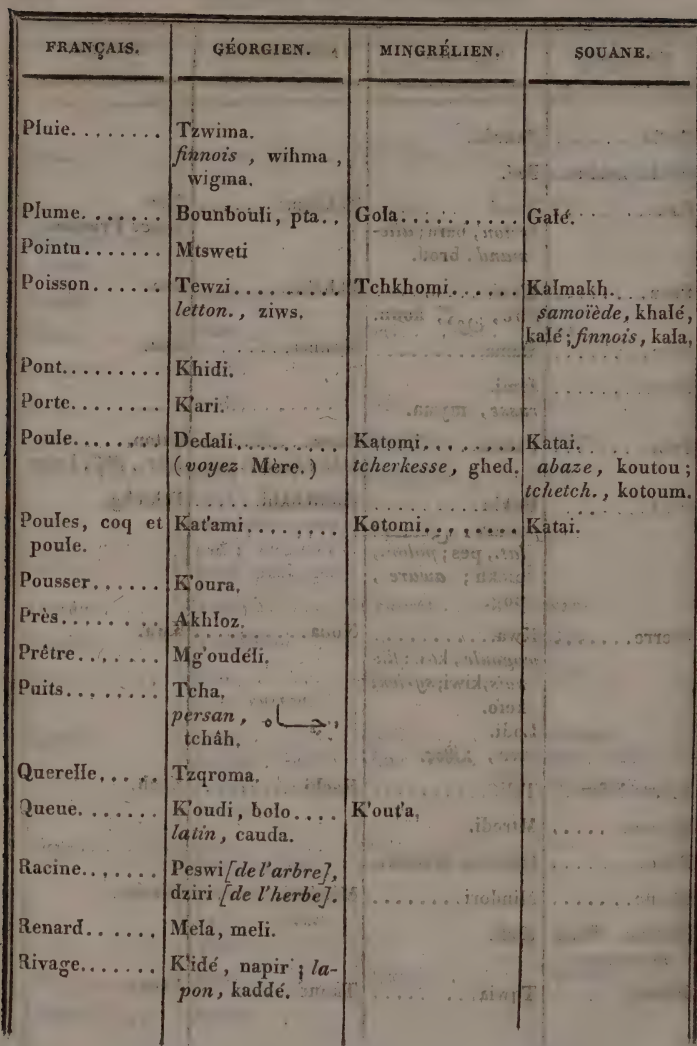 FRANÇAIS. GÉORGIEN. MINGRÉLIEN. SOUANE.
Pluie........ Tzwima.
finnois, wihma,
wigma.
Plume....... Bounbouli, pta.. Gola.......... Galé.
Pointu....... Mtsweti
Poisson...... Tewzi.......... Tchkhomi...... Kalmakh.
letton., ziws. samoïède, khalé,
kalé; finnois, kala,
Pont......... Khidi.
Porte........ K'ari.
Poule....... Dedali.......... Katomi........ Katai.
(voyez Mère.) tcherkesse, ghed. abaze, koutou;
tchetch., kotoum.
Poules, coq et Kat'ami........ Kotomi........ Katai.
poule.
Pousser...... K'oura.
Près........ Akhloz.
Prêtre....... Mg'oudéli.
Puits........ Tcha,
persan, چاه,
tchâh.
Querelle..... Tzqroma.
Queue....... K'oudi, bolo.... K'out'a.
latin, cauda.
Racine....... Peswi [de l'arbre],
dziri [de l'herbe].
Renard...... Mela, meli.
Rivage....... K'idé, napir; la-
pon, kaddé.